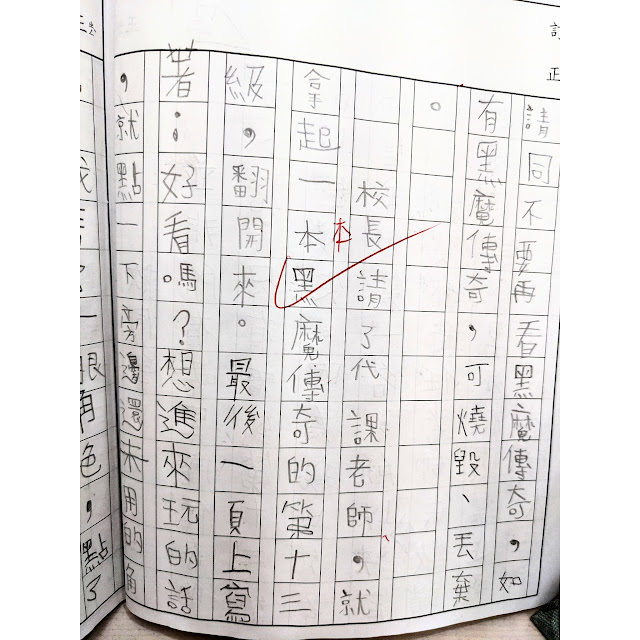 訂正
請同不要再看黑魔傳奇，如
有黑魔傳奇，可燒毀、丟棄
。
校長請了代課老師，就
本
拿起一本黑魔傳奇的第十三
級，翻開來。最後一頁上寫
著：好看嗎？想進來玩的話
，就點一下旁邊還未用的角
角色，點了